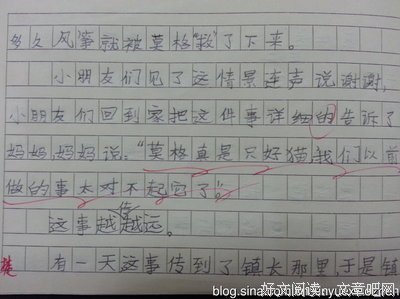 多久风筝就被莫格“救”了下来。
小朋友们见了这情景连声说谢谢,
小朋友们回到家把这件事详细的告诉了
妈妈,妈妈说:“莫格真是只好猫,我们以前
做的事太对不起它了。”
这事越传越远。
有一天这事传到了镇长那里,于是镇
blog.sina
好文阅读-文章吧网